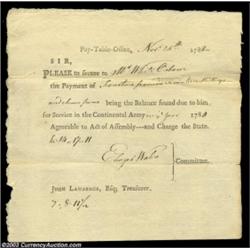 Pay-Table-Office, Nov. 26th 1784
SIR,
PLEASE to secure to Mr. Wm.
the Payment of Fourteen pounds seventeen shillings
and eleven pence being the Balance found due to him
for Service in the Continental Army in Year 1780
Agreeable to Act of Assembly—and Charge the State.
£14.17.11
Committee.
JOHN LAWRENCE, Esq; Treasurer.
©2003 Heritage Auctions, Inc.